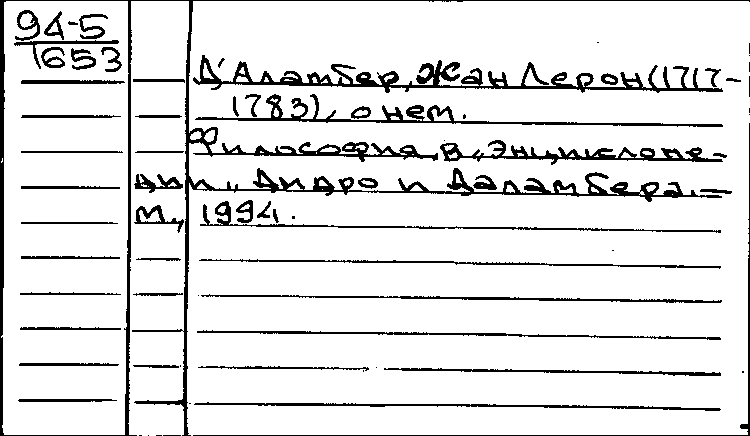 94-5
1653
Д'Аламбер, Жан Лерон (1717-
1783), о нем.
Философия в „Энциклопе-
дии„ Дидро и Даламбера. —
М., 1994.